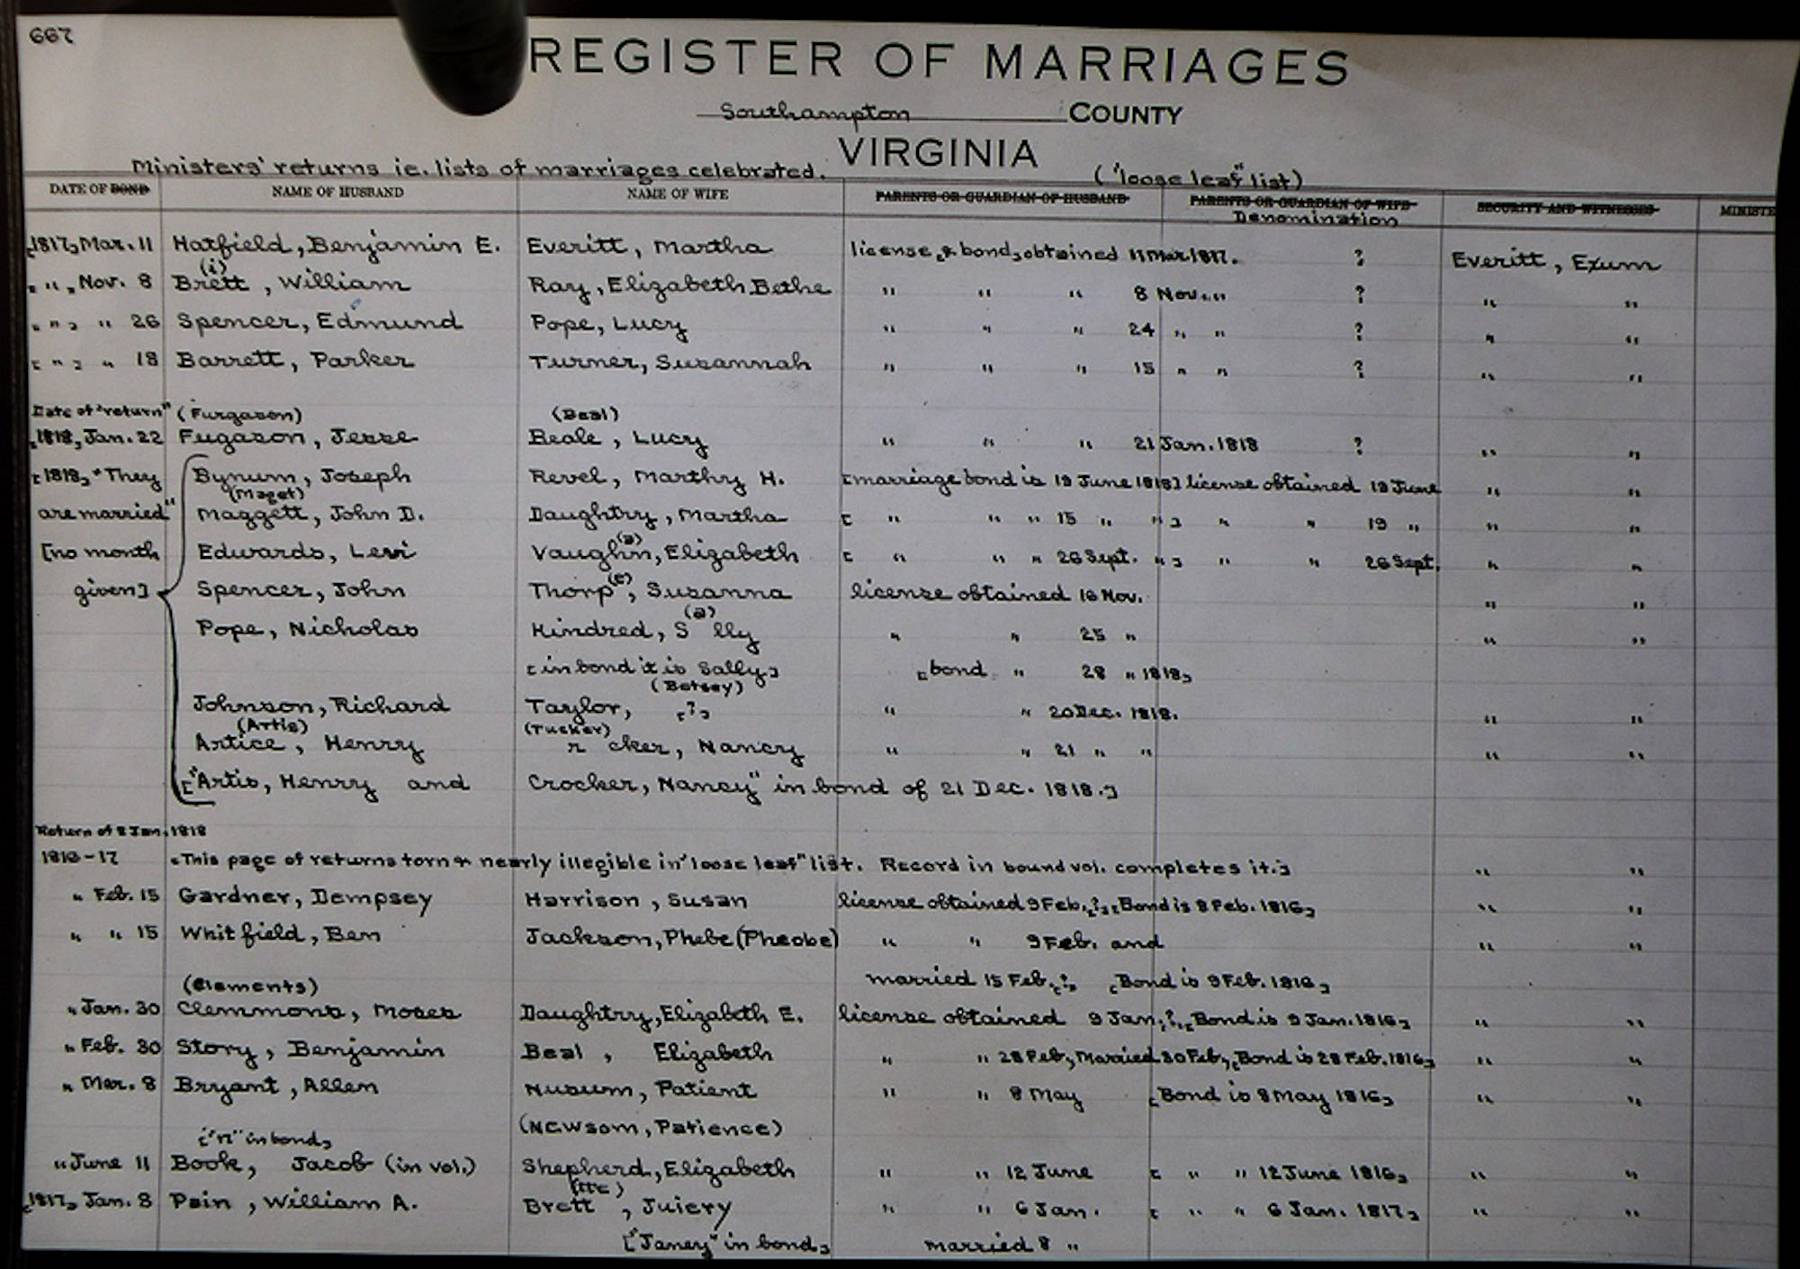 667
REGISTER OF MARRIAGES
Southampton COUNTY
VIRGINIA
Ministers' returns ie. lists of marriages celebrated. ("loose leaf" list)
DATE OF BOND NAME OF HUSBAND NAME OF WIFE PARENTS OR GUARDIAN OF HUSBAND PARENTS OR GUARDIAN OF WIFE SECURITY AND WITNESSES MINISTE
Denomination
[1817] Mar. 11 Hatfield, Benjamin E. Everitt, Martha license [& bond] obtained 11 Mar. 1817. ? Everitt, Exum
(i)
" " , Nov. 8 Brett, William Ray, Elizabeth Bethe " " " 8 Nov. " ? " "
" " " 26 Spencer, Edmund Pope, Lucy " " " 24 " " ? " "
[ " ] " 18 Barrett, Parker Turner, Susannah " " " 15 " " ? " "
Date of "return" (Furgason) (Beal)
[1818] Jan. 22 Fugason, Jesse Beale, Lucy " " " 21 Jan. 1818 ? " "
[1818] "They Bynum, Joseph Revel, Marthy H. [marriage bond is 19 June 1818] license obtained 19 June " "
(Maget)
are married" Maggett, John D. Daughtry, Martha [ " " " 15 " " ] " " 19 " " "
(a)
[no month Edwards, Levi Vaughn, Elizabeth [ " " " 26 Sept. " ] " " 26 Sept. " "
(e)
given] Spencer, John Thorp, Susanna license obtained 16 Nov. " "
(a)
Pope, Nicholas Kindred, S lly " " 25 " " "
[in bond it is Sally] [bond " 28 " 1818]
(Betsey)
Johnson, Richard Taylor, [?] " " 20 Dec. 1818. " "
(Artis) (Tucker)
Artice, Henry r cker, Nancy " " 21 " " " "
["Artis, Henry and Crocker, Nancy" in bond of 21 Dec. 1818.]
Return of 8 Jan. 1818
1816-17 [This page of returns torn & nearly illegible in "loose leaf" list. Record in bound vol. completes it.] " "
" Feb. 15 Gardner, Dempsey Harrison, Susan license obtained 9 Feb. [?] [Bond is 8 Feb. 1816] " "
" " 15 Whitfield, Ben Jackson, Phebe (Pheobe) " " 9 Feb. and " "
married 15 Feb. [?] [Bond is 9 Feb. 1816]
(Clements)
" Jan. 30 Clemmons, Moses Daughtry, Elizabeth E. license obtained 9 Jan. [?] [Bond is 9 Jan. 1816] " "
" Feb. 30 Story, Benjamin Beal, Elizabeth " " 28 Feb, Married 30 Feb, [Bond is 28 Feb. 1816] " "
" Mar. 8 Bryant, Allen Nusum, Patient " " 8 May [Bond is 8 May 1816] " "
(Newsom, Patience)
["n" in bond]
" June 11 Book, Jacob (in vol.) Shepherd, Elizabeth " " 12 June [ " " 12 June 1816] " "
(tte)
[1817] Jan. 8 Pain, William A. Brett, Juiery " " 6 Jan. [ " " 6 Jan. 1817] " "
["Janey" in bond] married 8 "